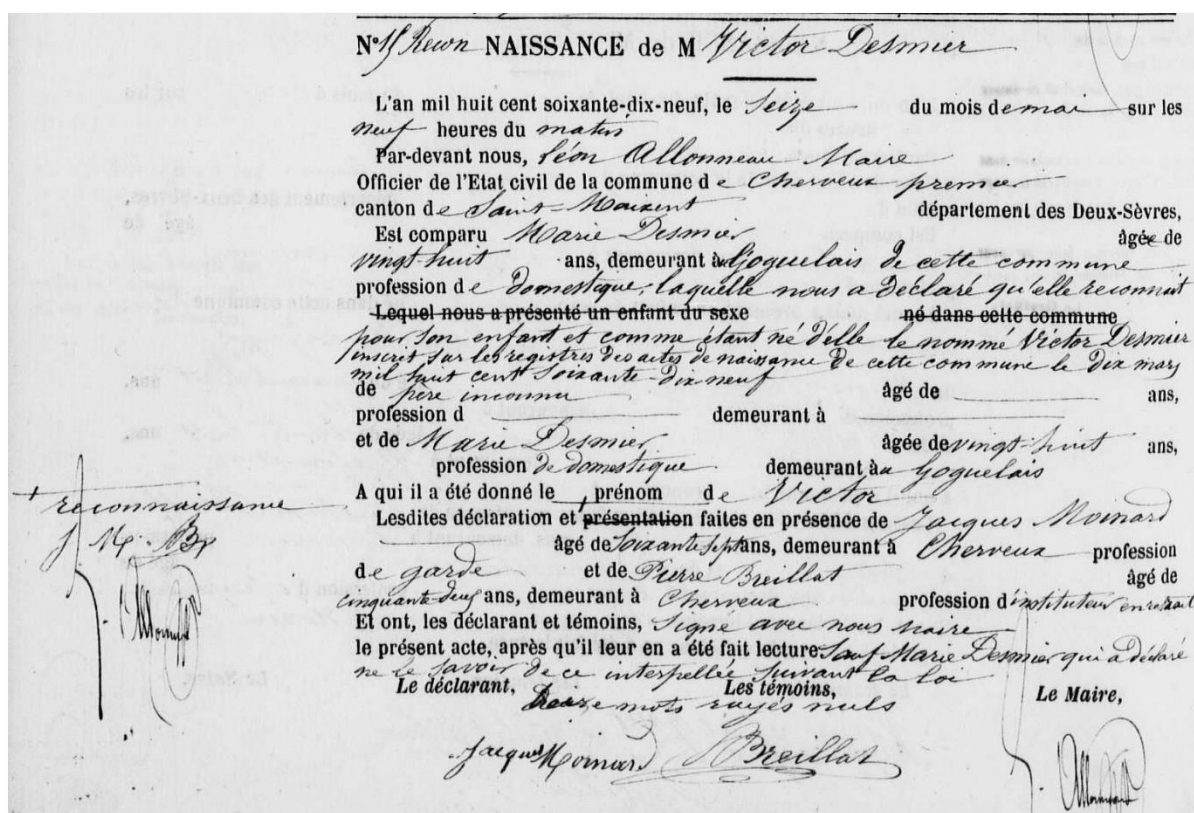 N° 15 Recon NAISSANCE de M Victor Desmier
L'an mil huit cent soixante-dix-neuf, le Seize du mois de mai sur les
neuf heures du matin
Par-devant nous, Léon Allonneau Maire
Officier de l'Etat civil de la commune de Cherveux premier
canton de Saint-Maixent département des Deux-Sèvres,
Est comparu Marie Desmier âgée de
vingt huit ans, demeurant à Goguelais de cette commune
profession de domestique, laquelle nous a déclaré qu'elle reconnait
Lequel nous a présenté un enfant du sexe né dans cette commune
pour son enfant et comme étant né d'elle le nommé Victor Desmier
inscrit sur les registres des actes de naissance de cette commune le dix mars
mil huit cent soixante-dix neuf
de père inconnu âgé de ans,
profession d demeurant à
et de Marie Desmier âgée de vingt-huit ans,
profession de domestique demeurant au Goguelais
A qui il a été donné le prénom de Victor
reconnaissance
Lesdites déclaration et présentation faites en présence de Jacques Moinard
âgé de Soixante sept ans, demeurant à Cherveux profession
de garde et de Pierre Breillat âgé de
cinquante deux ans, demeurant à Cherveux profession d'instituteur en retrait
Et ont, les déclarant et témoins, Signé avec nous maire
le présent acte, après qu'il leur en a été fait lecture. Sauf Marie Desmier qui a déclaré
ne le savoir de ce interpellée suivant la loi
Le déclarant, Les témoins, Le Maire,
mots rayés nuls
Jacques Moinard Breillat